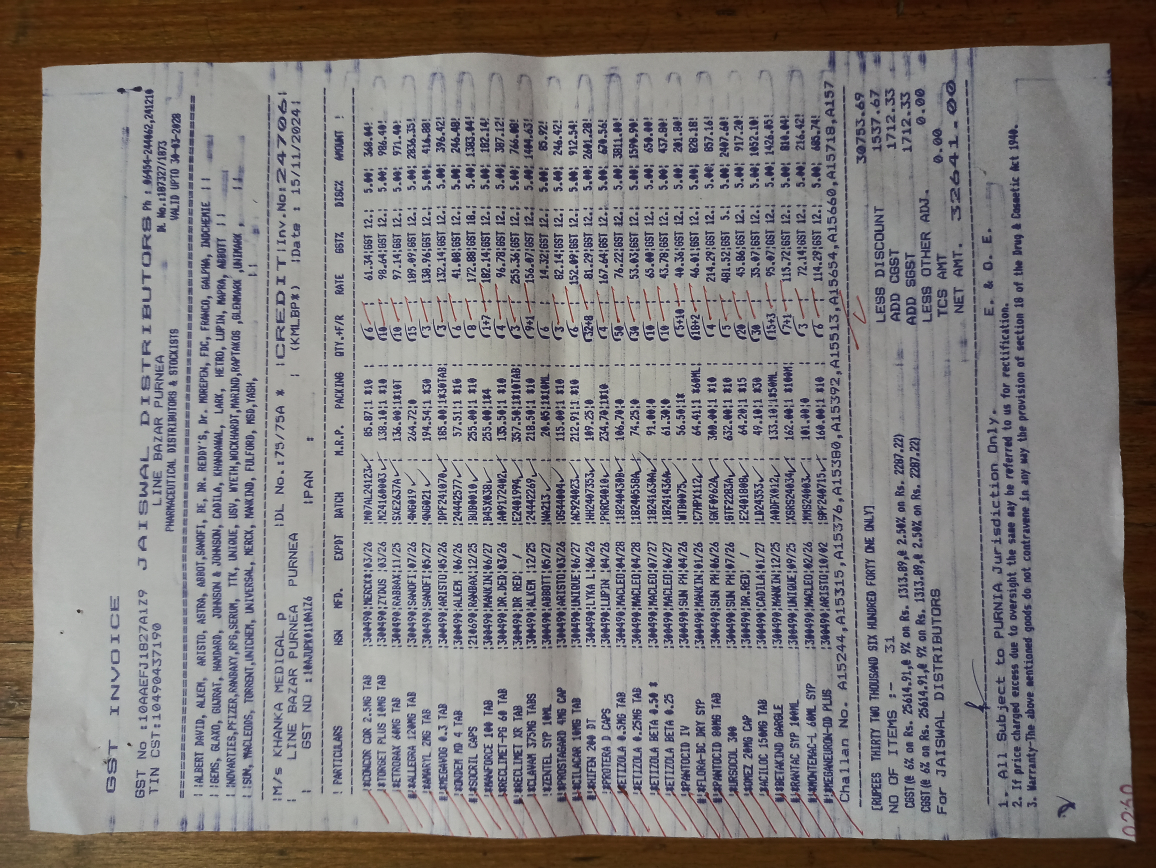 GST INVOICE
GST No :10AAEFJ1827A1Z9
TIN CST:10490437190
JAISWAL DISTRIBUTORS Ph : 06454-244062,241210
LINE BAZAR PURNEA
DL No.:107327/1873
PHARMACEUTICAL DISTRIBUTORS & STOCKISTS
VALID UPTO 30-03-2028
ALBERT DAVID, ALKEM, ARISTO, ASTRA, ABBOT, SANOFI, DE, DR. REDDY'S, Dr. MOREPEN, FDC, FRANCO, GALPHA, INDCHEMIE
GEMS, GLAXO, GUJRAT, HANDARD, JOHNSON & JOHNSON, CADILA, KHANDAWAL, LARK, HETRO, LUPIN, MAPRA, ABBOTT
NOVARTIES, PFIZER, RANBAXY, RPG, SERUM, TTK, UNIQUE, USV, WYETH, WOCKHARDT, MARIND, RAPTAKOS, GLENMARK, UNIMARK,
SUN, MACLEODS, TORRENT, UNICHEM, UNIVERSAL, MERCK, MANKIND, FULFORD, MSD, YASH,
M/s KHANKA MEDICAL p
DL No.:75/75A *
CREDIT Inv.No:24706
LINE BAZAR PURNEA PURNEA
(KMLBP*) Date : 15/11/2024
GST NO :10AJUPK0110A1Z6 PAN :
PARTICULARS HSN MFD. EXPDT BATCH M.R.P. PACKING QTY.+F/R RATE GST% DISC% AMOUNT
CONCOR COR 2.5MG TAB 300490 MERCK 03/26 M07AL24123 85.87 *10 6 61.34 GST 12. 5.00 368.04
TORGET PLUS 10MG TAB 300490 ZYDUS 03/26 M2416003 138.10 *10 10 98.64 GST 12. 5.00 986.40
RETROBAX 60MG TAB 300490 RABBAX 11/25 SXE2637A 136.00 10T 10 97.14 GST 12. 5.00 971.40
ALLEGRA 120MG TAB 300490 SANOFI 07/26 4NG019 264.72 10 15 189.09 GST 12. 5.00 2836.35
AMARYL 2MG TAB 300490 SANOFI 05/27 4NG021 194.54 *30 3 138.96 GST 12. 5.00 416.88
OMEGAVOG 0.3 TAB 300490 ARISTO 05/26 DPF241070 185.00 *30TAB 3 132.14 GST 12. 5.00 396.42
ONDEM MD 4 TAB 300490 ALKEM 06/26 24442577 57.51 *10 6 41.08 GST 12. 5.00 246.48
SODICRIL CAPS 210690 RANBAX 12/25 BUB0010 255.00 *10 8 172.88 GST 18. 5.00 1383.04
MANFORCE 100 TAB 300490 MANKIN 06/27 B45X03B 255.00 *4 1+7 182.14 GST 12. 5.00 182.14
RECLIMET-PG 60 TAB 300490 DR.RED 03/26 A09172402 135.50 *10 4 96.78 GST 12. 5.00 387.12
RECLIMET XR TAB 300490 DR RED / EZ401994 357.50 *10TAB 3 255.36 GST 12. 5.00 766.08
CLAVAM 375MG TABS 300490 ALKEM 12/25 24442269 218.50 *10 9+1 156.07 GST 12. 5.00 1404.63
ZENTEL SYP 10ML 300490 ABBOTT 05/27 HA0213 20.05 *10ML 6 14.32 GST 12. 5.00 85.92
PROSTAGARD 4MG CAP 300490 ARISTO 03/26 DS44004 115.00 *10 3 82.14 GST 12. 5.00 246.42
CILACAR 10MG TAB 300490 UNIQUE 06/27 AC924023 212.91 *10 6 152.09 GST 12. 5.00 912.54
OXIFEN 200 DT 300490 LYKA L 06/26 HH2407353 109.25 10 32+8 81.29 GST 12. 5.00 2601.28
PROTERA D CAPS 300490 LUPIN 04/26 PRBD34010 234.70 *10 4 167.64 GST 12. 5.00 670.56
ETIZOLA 0.5MG TAB 300490 MACLEO 04/28 1B240430B 106.70 10 50 76.22 GST 12. 5.00 3811.00
ETIZOLA 0.25MG TAB 300490 MACLEO 05/28 1B240558A 74.25 10 30 53.03 GST 12. 5.00 1590.90
ETIZOLA BETA 0.50 * 300490 MACLEO 07/27 1B241630A 91.00 10 10 65.00 GST 12. 5.00 650.00
ETIZOLA BETA 0.25 300490 MACLEO 06/27 1B241436A 61.30 10 10 43.78 GST 12. 5.00 437.80
PANTOCID IV 300490 SUN PH 04/26 WTB0075 56.50 1* 5+10 40.36 GST 12. 5.00 201.80
FLORA-BC DRY SYP 300490 SUN PH 04/26 C7HPX112 64.41 *60ML 18+2 46.01 GST 12. 5.00 828.18
PANTOCID 80MG TAB 300490 SUN PH 06/26 GKF0962A 300.00 *10 4 214.29 GST 12. 5.00 857.16
URSOCOL 300 300490 SUN PH 07/26 GTF2283A 632.00 *10 5 481.52 GST 5. 5.00 2407.60
OMEZ 20MG CAP 300490 DR.RED / EZ401808 64.20 *15 20 45.86 GST 12. 5.00 917.20
ACILOC 150MG TAB 300490 CADILA 01/27 LD24353 49.10 *30 30 35.07 GST 12. 5.00 1052.10
BETAKIND GARGLE 300490 MANKIN 12/25 A0DFX012 133.10 *50ML 15+3 95.07 GST 12. 5.00 1426.05
RANTAC SYP 100ML 300490 UNIQUE 09/25 XSRS24034 162.00 *100M 7+1 115.72 GST 12. 5.00 810.04
MONTEMAC-L 60ML SYP 300490 MACLEO 02/26 MMS24003 101.00 3 72.14 GST 12. 5.00 216.42
MEGANEURON-OD PLUS 300490 ARISTO 10/02 BPF240715 160.00 *10 6 114.29 GST 12. 5.00 685.74
Challan No. A15244,A15315,A15376,A15380,A15392,A15513,A15654,A15660,A15718,A157
30753.69
[RUPEES THIRTY TWO THOUSAND SIX HUNDRED FORTY ONE ONLY]
LESS DISCOUNT 1537.67
NO OF ITEMS :- 31
ADD CGST 1712.33
CGST(@ 6% on Rs. 25614.91,@ 9% on Rs. 1313.89,@ 2.50% on Rs. 2287.22)
ADD SGST 1712.33
CGST(@ 6% on Rs. 25614.91,@ 9% on Rs. 1313.89,@ 2.50% on Rs. 2287.22)
LESS OTHER ADJ. 0.00
For JAISWAL DISTRIBUTORS
TCS AMT 0.00
NET AMT. 32641.00
E. & O. E.
1. All Subject to PURNIA Jurisdiction Only.
2. If price charged excess due to oversight the same may be referred to us for rectification.
3. Warranty-The above mentioned goods do not contravene in any way the provision of section 18 of the Drug & Cosmetic Act 1940.